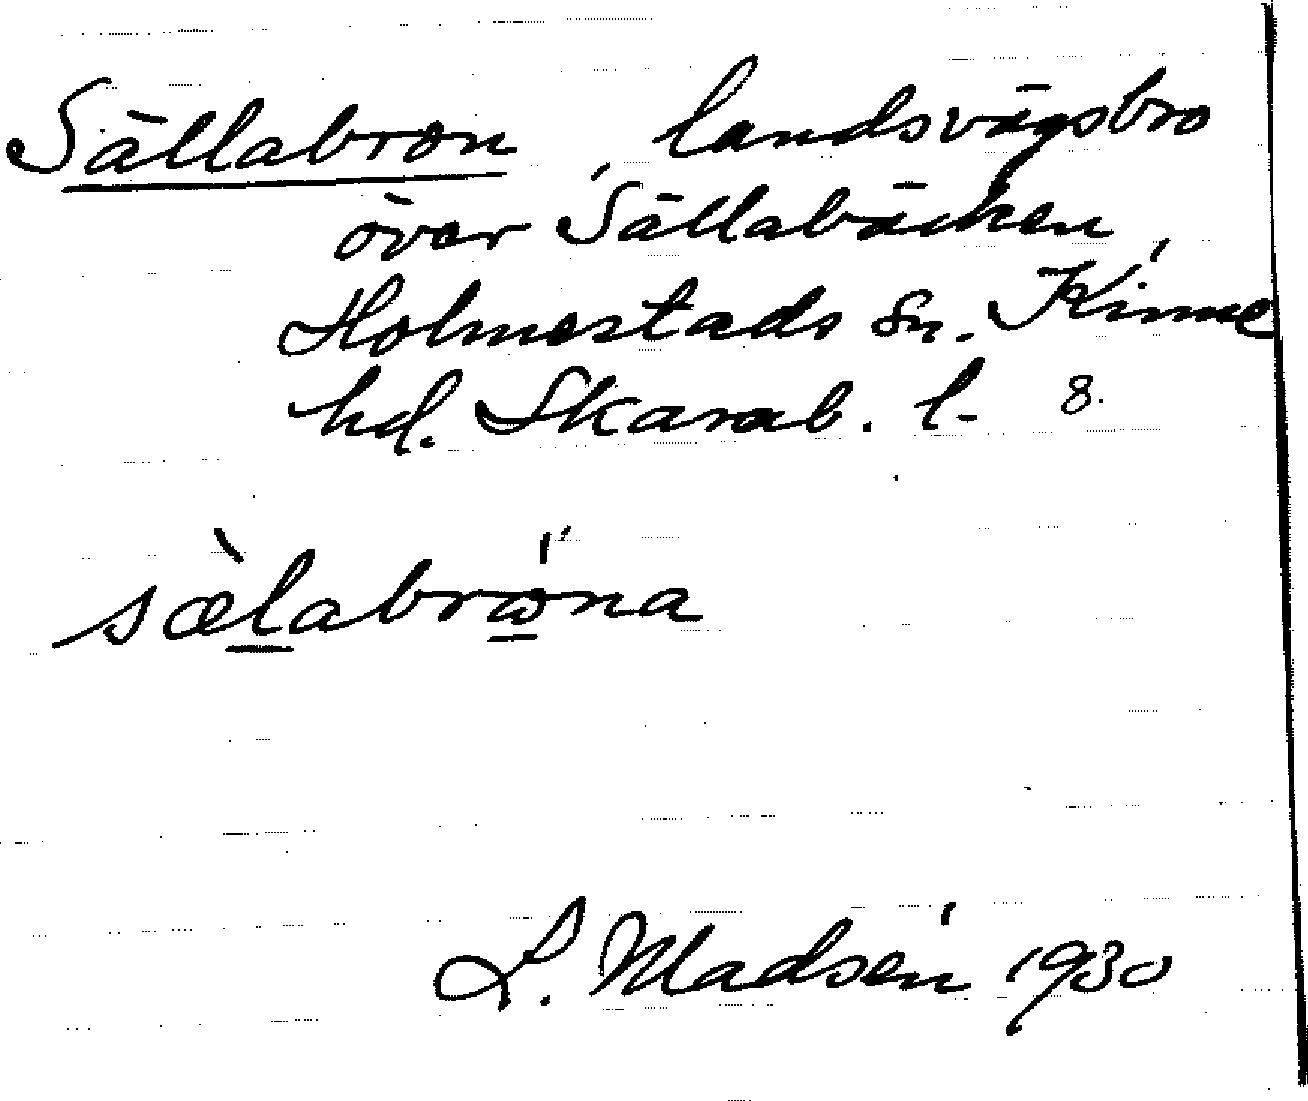 Sällabron, landsvägsbro
över Sällabäcken,
Holmestads sn. Kinne
hd. Skarab. l. 8.
sæ̀labrω̄́na
L. Madsén 1930